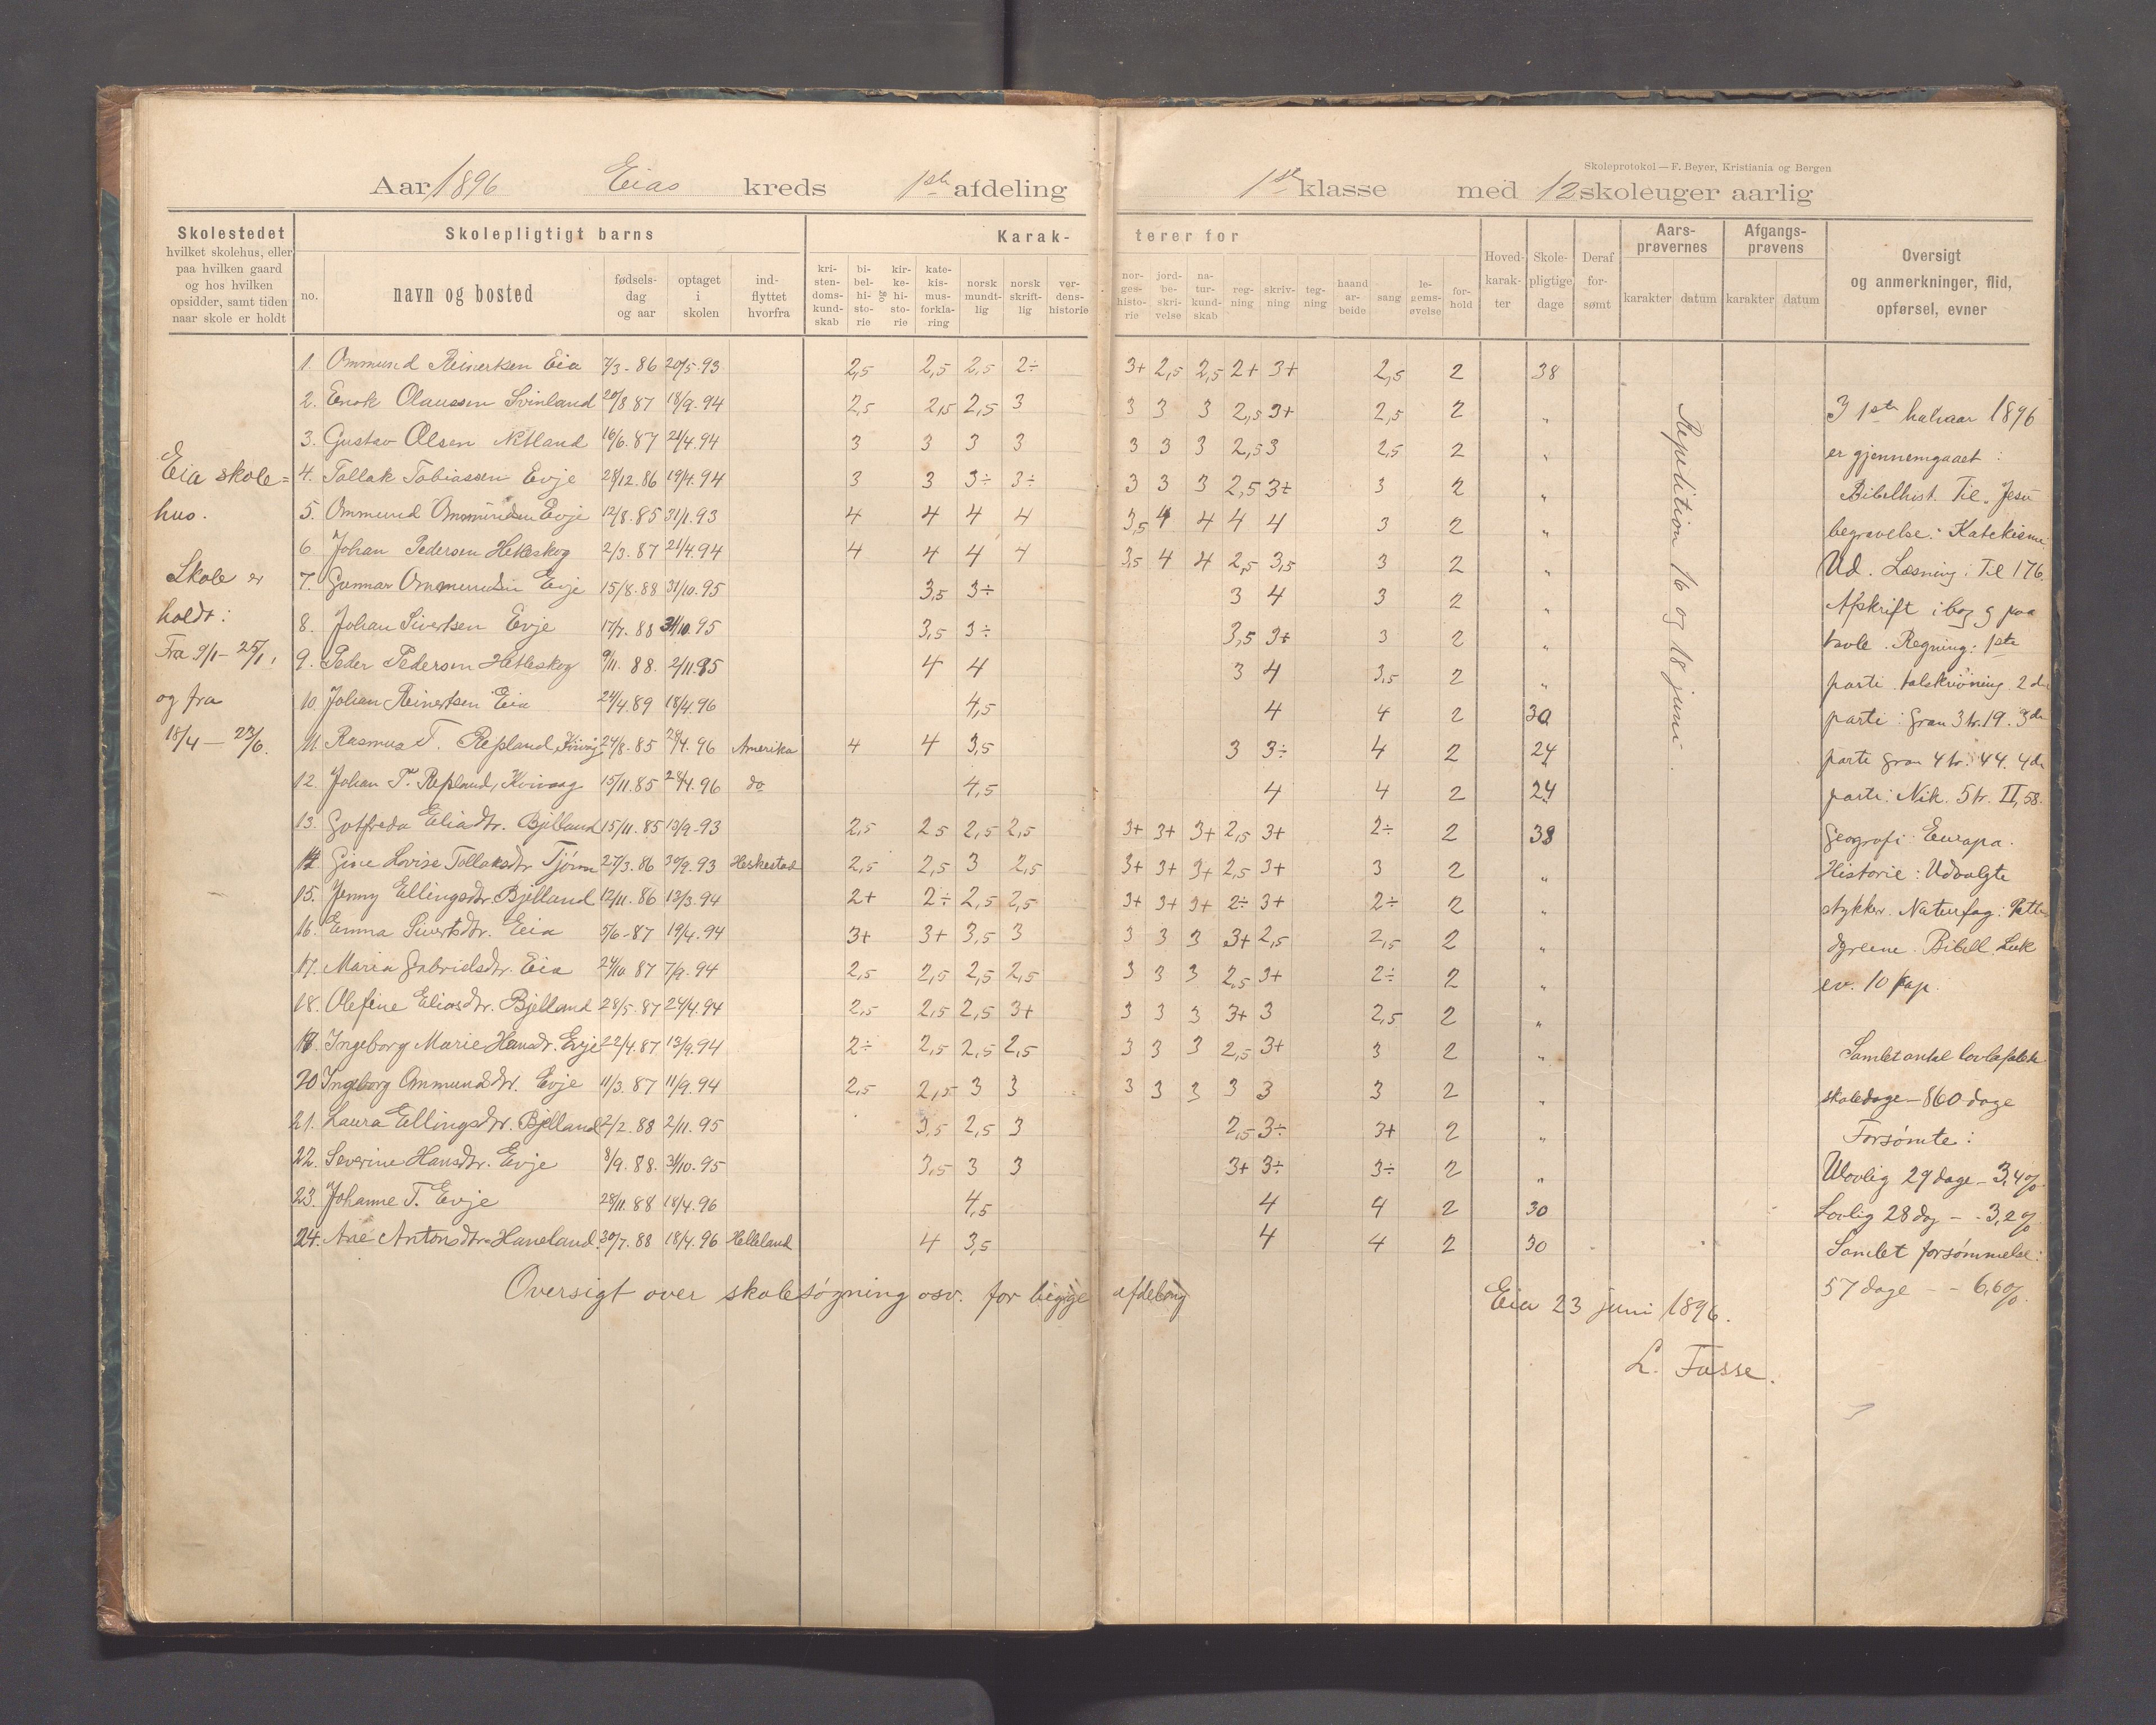 Skoleprotokol — F. Beyer, Kristiania og Bergen
Aar 1896 Eias kreds 1ste afdeling 1ste klasse med 12 skoleuger aarlig
Skolestedet
hvilket skolehus, eller
paa hvilken gaard
og hos hvilken
opsidder, samt tiden
naar skole er holdt
Skolepligtigt barns
no. navn og bosted fødsels-dag og aar optaget i skolen ind-flyttet hvorfra
Karak- terer for
kri-sten-doms-kund-skab bi-bel-hi-sto-rie og kir-ke-hi-sto-rie kate-kis-mus-forkla-ring norsk mundt-lig norsk skrift-lig ver-dens-historie nor-ges-histo-rie jord-be-skri-velse na-tur-kund-skab reg-ning skriv-ning teg-ning haand ar-beide sang le-gems-øvelse for-hold
Hoved-karak-ter Skole-pligtige dage Deraf for-sømt
Aars-prøvernes karakter datum
Afgangs-prøvens karakter datum
Oversigt
og anmerkninger, flid,
opførsel, evner
Eia skole=
hus.
Skole er
holdt:
Fra 9/1 - 25/1,
og fra
18/4 — 23/6.
1. Ommund Reinertsen Eia 7/3 - 86 20/5.93 2,5 2,5 2,5 2÷ 3+ 2,5 2,5 2+ 3+ 2,5 2 38
2. Enok Olaussen Svinland 20/8 87 18/9.94 2,5 2,5 2,5 3 3 3 3 2,5 3+ 2,5 2 "
3. Gustav Olsen Netland 16/6.87 21/4.94 3 3 3 3 3 3 3 2,5 3 2,5 2 "
4. Tollak Tobiassen Evje 28/12.86 19/4.94 3 3 3÷ 3÷ 3 3 3 2,5 3+ 3 2 "
5. Ommund Ommundsen Evje 12/8.85 31/1.93 4 4 4 4 3,5 4 4 4 4 3 2 "
6. Johan Pedersen Hetleskog 2/3.87 21/4.94 4 4 4 4 3,5 4 4 2,5 3,5 3 2 "
7. Gunnar Ommundsen Evje 15/8.88 31/10.95 3,5 3÷ 3 4 3 2 "
8. Johan Sivertsen Evje 17/7.88 31/10.95 3,5 3÷ 3,5 3+ 3 2 "
9. Peder Pedersen Hetleskog 9/11.88. 2/11.95 4 4 3 4 3,5 2 "
10. Johan Reinertsen Eia 24/4.89 18/4.96 4,5 4 4 2 30
11. Rasmus T. Repland, 24/8.85 28/4.96 Amerika 4 4 3,5 3 3÷ 4 2 24
12. Johan T. Repland, 15/11.85 28/4.96 do 4,5 4 4 2 24
13. Gotfreda Eliadtr. Bjelland 15/11.85 13/9.93 2,5 2,5 2,5 2,5 3+ 3+ 3+ 2,5 3+ 2÷ 2 38
14. Gine Lovise Tollaksdtr Tjørn 27/3.86 30/9.93 Heskestad 2,5 2,5 3 2,5 3+ 3+ 3+ 2,5 3+ 3 2 "
15. Jenny Ellingsdtr. Bjelland 12/11.86 13/3.94 2+ 2÷ 2,5 2,5 3+ 3+ 3+ 2÷ 3+ 2÷ 2 "
16. Emma Sivertsdtr. Eia 5/6-87 19/4.94 3+ 3+ 3,5 3 3 3 3 3+ 2,5 2,5 2 "
17. Maria Gabrielsdtr. Eia 24/10.87 7/9.94 2,5 2,5 2,5 2,5 3 3 3 2,5 3+ 2÷ 2 "
18. Olefine Eliasdtr. Bjelland 28/5.87 24/4.94 2,5 2,5 2,5 3+ 3 3 3 3+ 3 2,5 2 "
19. Ingeborg Marie Hansdtr. Evje 22/4.87 13/9.94 2÷ 2,5 2,5 2,5 3 3 3 2,5 3+ 3 2 "
20. Ingeborg Ommundsdtr. Evje 11/3.87 11/9.94 2,5 2,5 3 3 3 3 3 3 3 3 2 "
21. Laura Ellingsdtr. Bjelland 2/2.88 2/11.95 3,5 2,5 3 2,5 3÷ 3+ 2 "
22. Severine Hansdtr. Evje 8/9.88. 31/10.95 3,5 3 3 3+ 3÷ 3÷ 2 "
23. Johanne T. Evje 28/11.88 18/4.96 4,5 4 4 2 30
24. Ane Antonsdtr Haneland 30/7.88 18/4.96 Helleland 4 3,5 4 4 2 30
Oversigt over skolesøgning osv. for begge afdeling
Repetition 16 og 18 juni.
I 1ste halvaar 1896
er gjennemgaaet:
Bibelhist. Til Jesu
begravelse. Katekisme
Ud. Læsning: Til 176.
Afskrift i bog og paa
tavle. Regning: 1ste
parti talskrivning 2det
parti: Gran 3 tr. 19. 3de
parti Gran 4 tr. 44. 4de
parti: Nik. 5 tr. II, 58.
Geografi: Europa.
Historie: Udvalgte
stykker. Naturfag: Patte
dyrene. Bibell. Luk
ev. 10 kap.
Samlet antal lovbefalede
skoledage — 860 dage
Forsømte:
Ulovlig 29 dage - 3,4%
Lovlig 28 dag - - 3,2%
Samlet forsømmelse:
57 dage - - 6,6%.
Eia 23 juni 1896.
L. Fasse.